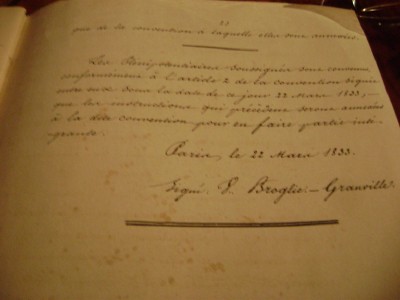 23
que de la convention à laquelle elles sont annexées.
Les Plénipotentiaires soussignés sont convenus,
conformément à l'article 2 de la convention signée
entre eux sous la date de ce jour 22 Mars 1833,
que les instructions qui précèdent seront annexées
à la dite convention pour en faire partie inté-
grante.
Paris, le 22 Mars 1833.
Signé: V. Broglie. – Granville.